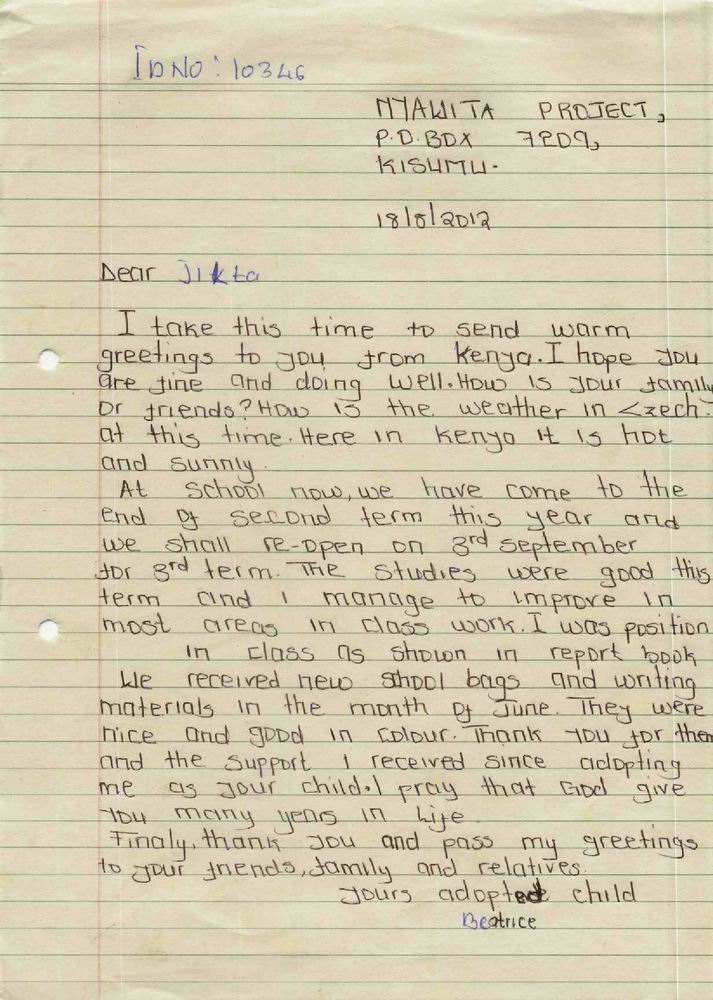 ID NO: 10346
NYAWITA PROJECT,
P.O.BOX 7209,
KISUMU.
18/8/2012
Dear Jikta
I take this time to send warm
greetings to you from Kenya. I hope you
are fine and doing well. How is your family
or friends? How is the weather in Czech.
at this time. Here in Kenya it is hot
and sunny.
At school now, we have come to the
end of second term this year and
we shall re-open on 3rd september
for 3rd term. The studies were good this
term and i manage to improve in
most areas in class work. I was position
in class as shown in report book
We received new shool bags and writing
materials in the month of June. They were
nice and good in colour. Thank you for them
and the support i received since adopting
me as your child. I pray that God give
you many years in life.
Finaly, thank you and pass my greetings
to your friends, family and relatives.
yours adopted child
Beatrice